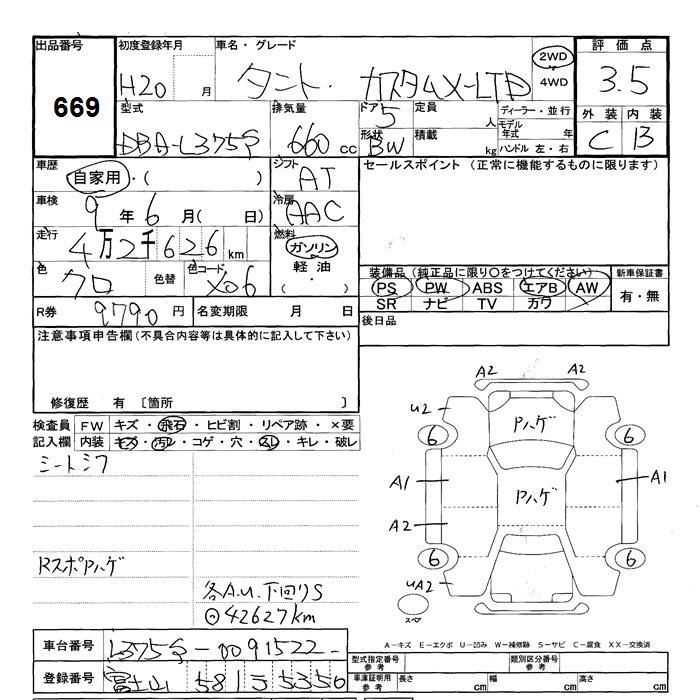 出品番号 初度登録年月 車名・グレード 評価点
669 H20 月 タント・カスタムX-LTD 2WD 4WD 3.5
型式 排気量 ドア 定員 ディーラー・並行 外装 内装
DBA-L375S 660 cc 5 人 モデル年式 年 C B
形状 積載 kg ハンドル 左・右
BW
車歴 シフト セールスポイント（正常に機能するものに限ります）
自家用・( ) AT
車検 冷房
9年6月( 日) AAC
走行 燃料
4万2千626km ガソリン
色 色替 色コード 軽油 装備品（純正品に限り○をつけてください） 新車保証書
クロ X06 ( ・ ) PS PW ABS エアB AW 有・無
SR ナビ TV カワ
R券 9790円 名変期限 月 日 後日品
注意事項申告欄(不具合内容等は具体的に記入して下さい)
修復歴 有 〔箇所 〕
検査員 FW キズ・飛石・ヒビ割・リペア跡・×要
記入欄 内装 キズ・汚レ・コゲ・穴・スレ・キレ・破レ
シートシワ
RスポPハゲ
各A.U.下回りS
⊙42627km
A2 A2
U2 Pハゲ
6 6
A1 Pハゲ A1
A2
6 6
UA2
スペア
A－キズ E－エクボ U－凹み W－補修跡 S－サビ C－腐食 XX－交換済
車台番号 L375S-0091522-
型式指定番号 参考 類別区分番号 参考
登録番号 富士山 581 5350
車庫証明用 参考 長さ cm 幅 cm 高さ cm